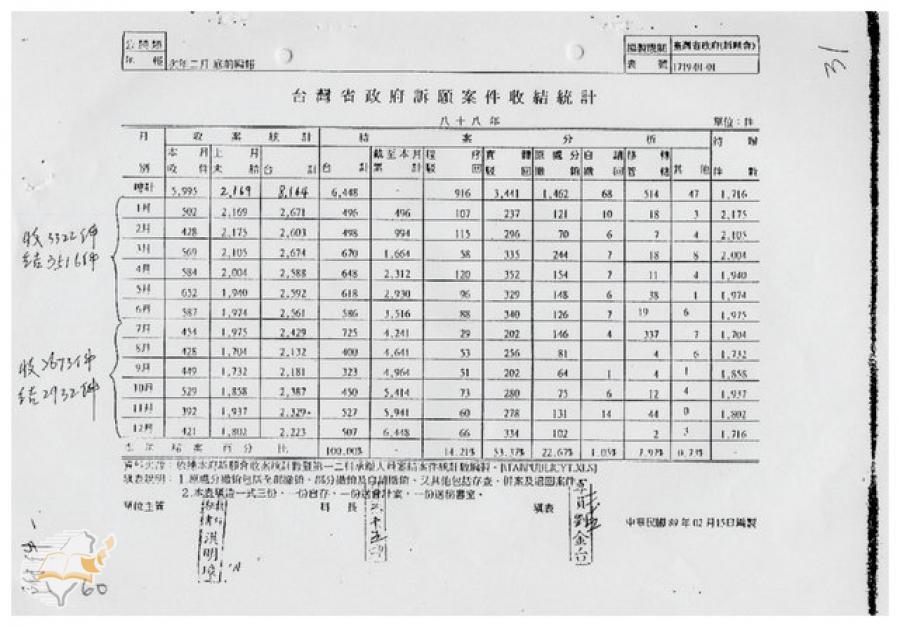 公開類
年報
次年二月底前編報
編製機關 臺灣省政府(訴願會)
表號 1719-01-01
31
台灣省政府訴願案件收結統計
八十八年
單位:件
月別 收案統計 結案分析 待辦件數
本月收件 上月未結 合計 合計 截至本月累計 程序駁回 實體駁回 原處分撤銷 自請撤回 移轉管轄 其他
總計 5,995 2,169 8,164 6,448 - 916 3,441 1,462 68 514 47 1,716
1月 502 2,169 2,671 496 496 107 237 121 10 18 3 2,175
2月 428 2,175 2,603 498 994 115 296 70 6 7 4 2,105
3月 569 2,105 2,674 670 1,664 58 335 244 7 18 8 2,004
4月 584 2,004 2,588 648 2,312 120 352 154 7 11 4 1,940
5月 652 1,940 2,592 618 2,930 96 329 148 6 38 1 1,974
6月 587 1,974 2,561 586 3,516 88 340 126 7 19 6 1,975
7月 454 1,975 2,429 725 4,241 29 202 146 4 337 7 1,704
8月 428 1,704 2,132 400 4,641 53 256 81 4 6 1,732
9月 449 1,732 2,181 323 4,964 51 202 64 1 4 1 1,858
10月 529 1,858 2,387 450 5,414 73 280 75 6 12 4 1,937
11月 392 1,937 2,329 527 5,941 60 278 131 14 44 0 1,802
12月 421 1,802 2,223 507 6,448 66 334 102 2 3 1,716
本年結案百分比 100.00% 14.21% 53.37% 22.67% 1.05% 7.97% 0.73%
收3322件
結3516件
收2673件
結2932件
填表說明:1.原處分撤銷包括全部撤銷、部分撤銷及自請撤銷,又其他包括存查、併案及退回案件。
2.本表填造一式三份,一份自存,一份送會計室,一份送秘書室。
單位主管 科長 填表
洪明璋
劉金台
中華民國89年02月15日編製
60